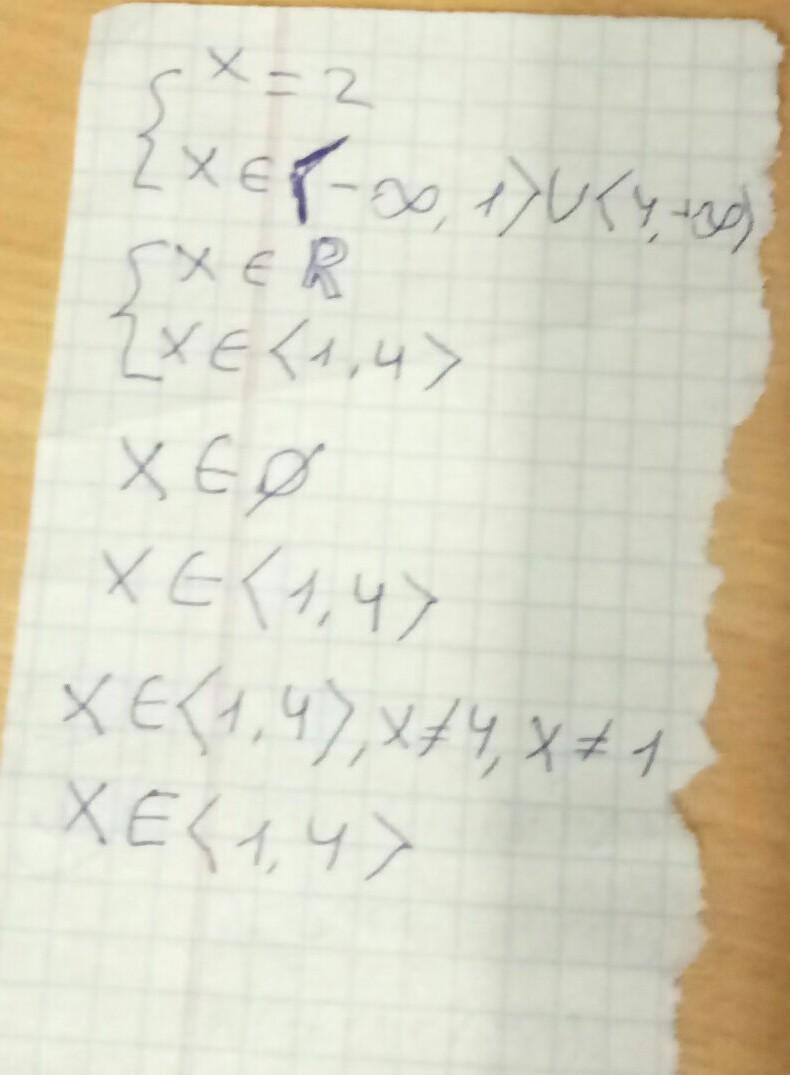 { x = 2
x ∈ ⟨-∞, 1⟩∪⟨4, +∞)
{ x ∈ ℝ
x ∈ ⟨1, 4⟩
x ∈ ∅
x ∈ ⟨1, 4⟩
x ∈ ⟨1, 4⟩, x ≠ 4, x ≠ 1
x ∈ ⟨1, 4⟩